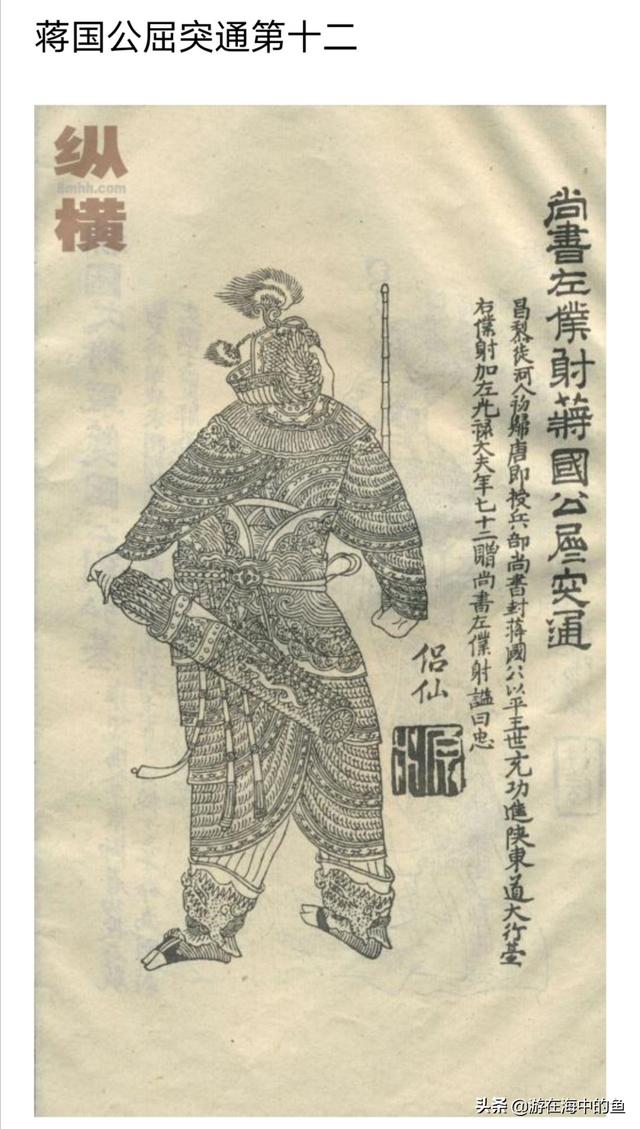 蒋国公屈突通第十二
纵
8mhh.com
横
尚書左僕射蔣國公屈突通
昌黎徒河人初歸唐即授兵部尚書封蔣國公以平王世充功進陝東道大行臺
右僕射加左光祿大夫年七十二贈尚書左僕射諡曰忠
侣仙
头条 @游在海中的鱼